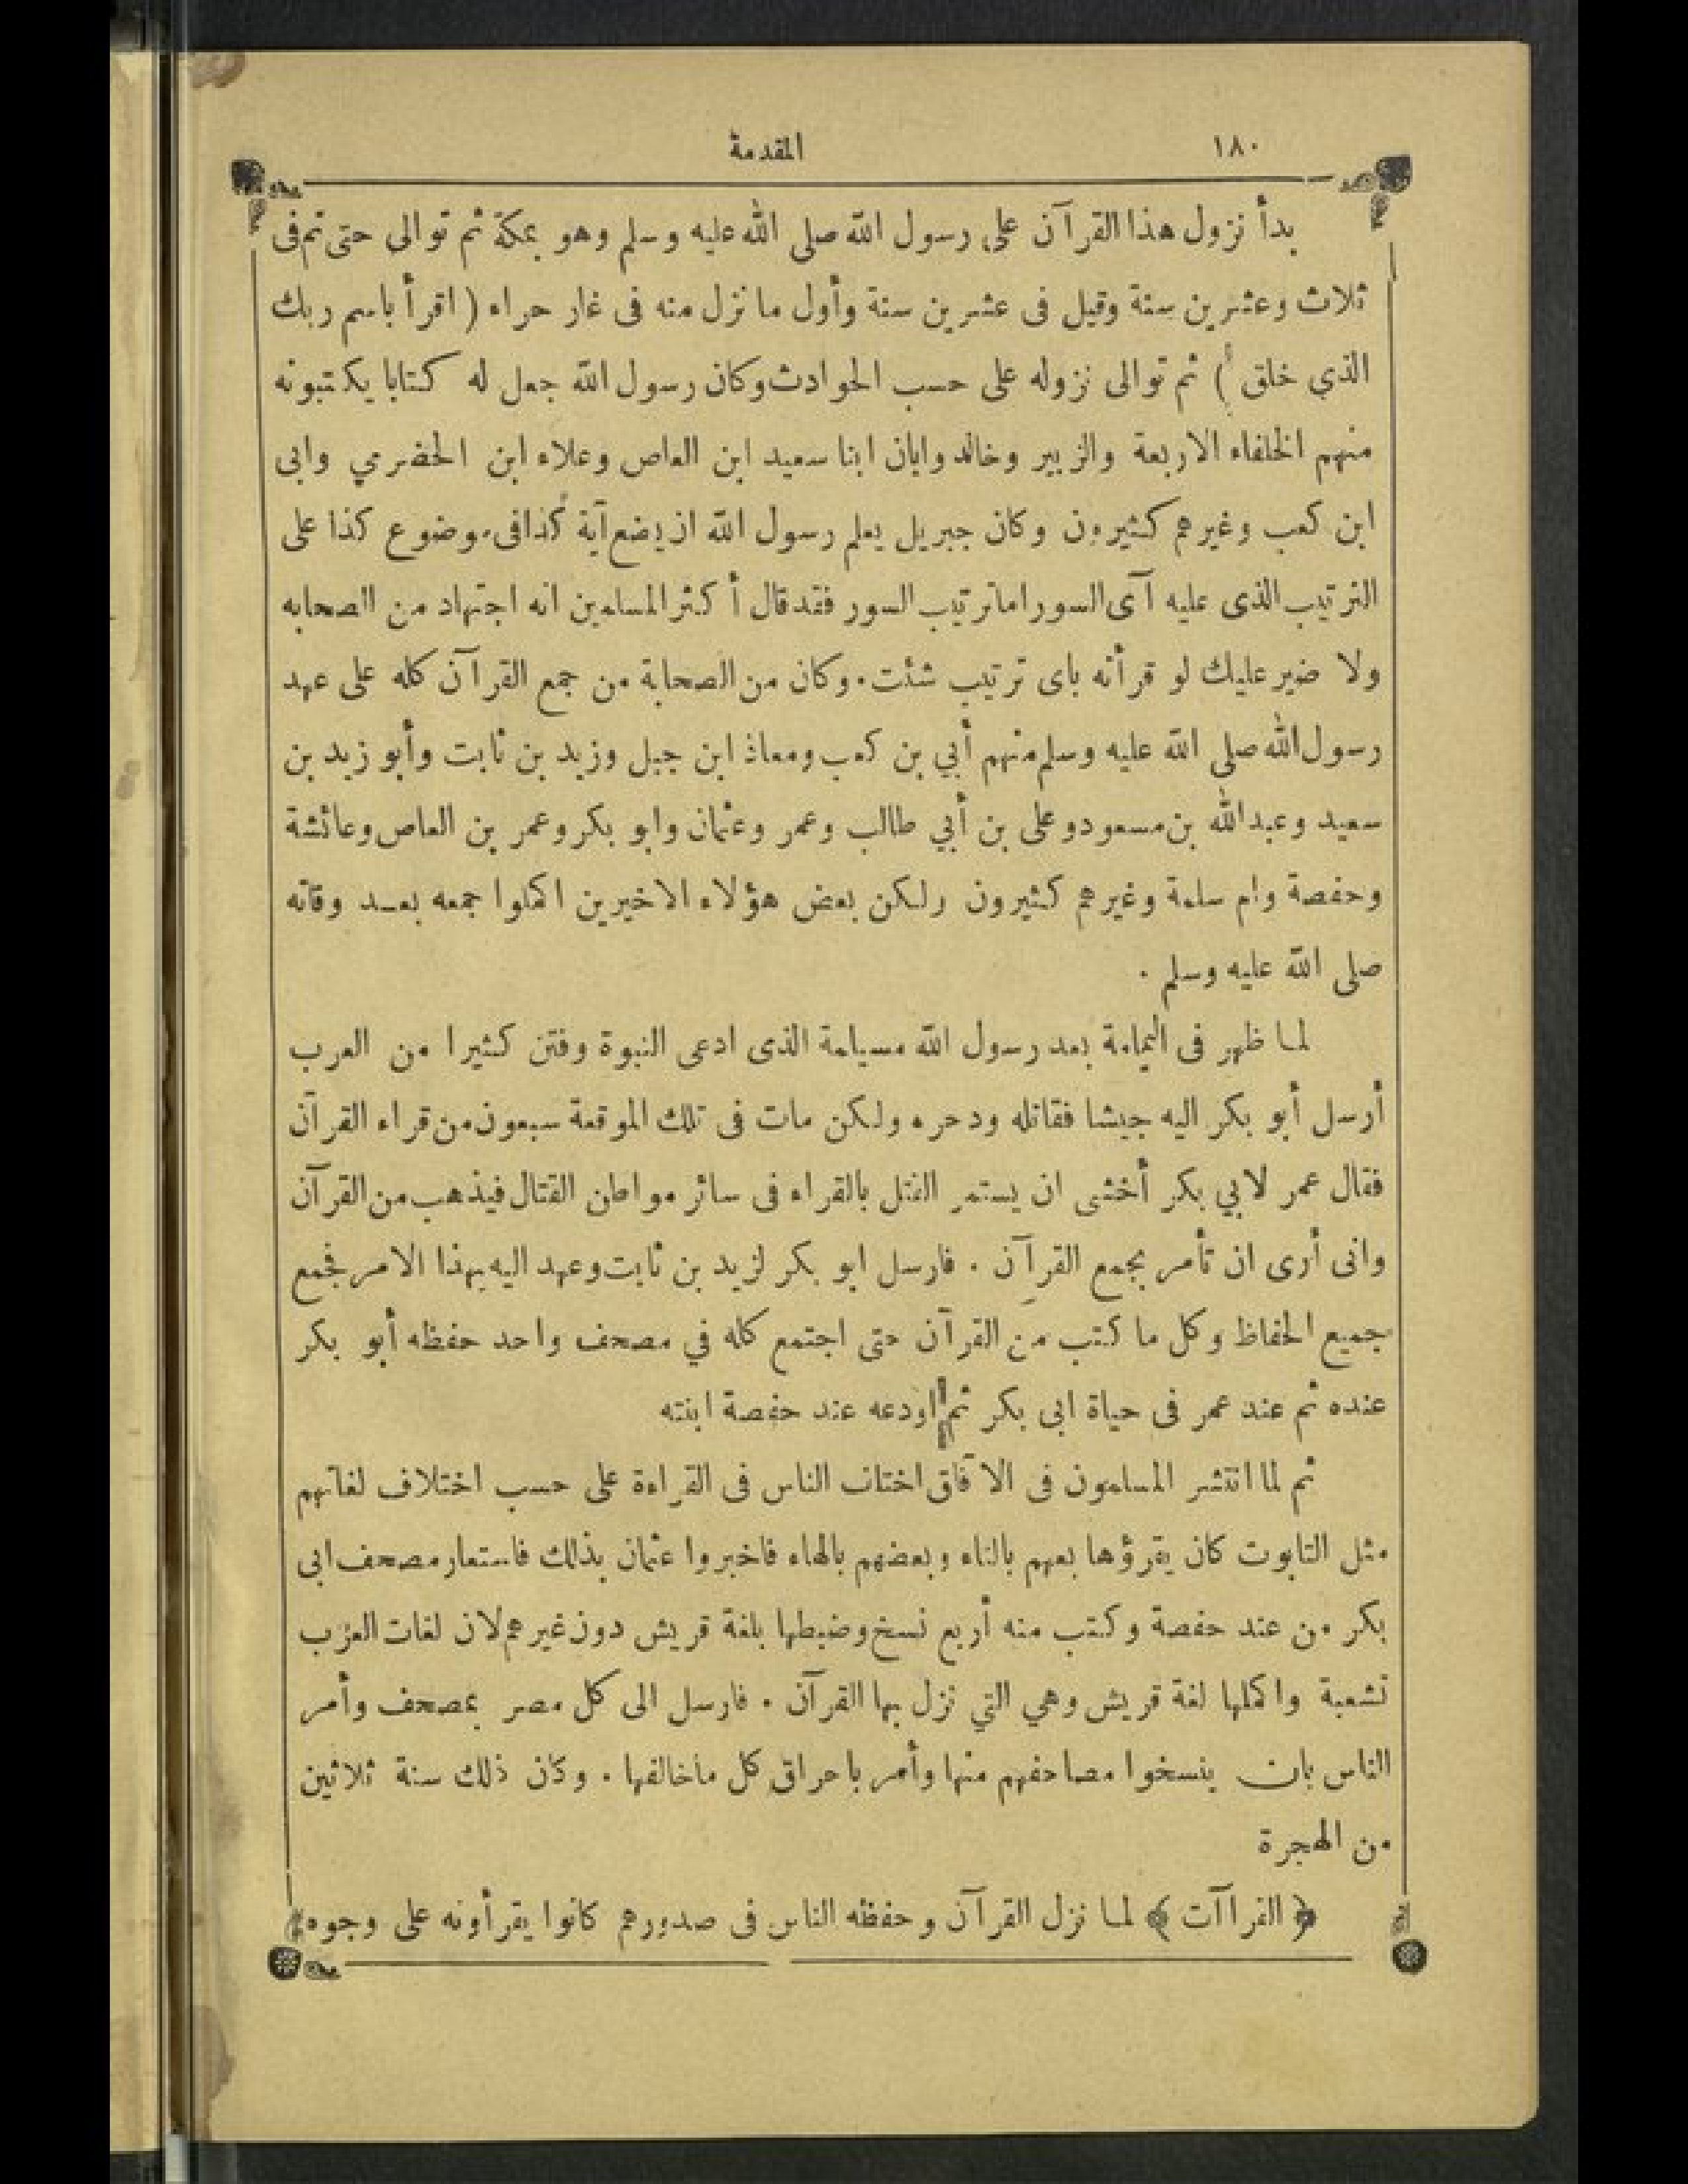 ١٨٠
المقدمة
بدأ نزول هذا القرآن على رسول الله صلى الله عليه وسلم وهو بمكة ثم توالى حتى تم فى
ثلاث وعشرين سنة وقيل فى عشرين سنة وأول ما نزل منه فى غار حراء ( اقرأ باسم ربك
الذي خلق ) ثم توالى نزوله على حسب الحوادث وكان رسول الله جعل له كتابا يكتبونه
منهم الخلفاء الاربعة والزبير وخالد وابان ابنا سعيد ابن العاص وعلاء ابن الحضرمي وابى
ابن كعب وغيرهم كثيرون وكان جبريل يعلم رسول الله ان يضع آية كذا فى موضوع كذا على
الترتيب الذى عليه آى السور اما ترتيب السور فقد قال أكثر المسلمين انه اجتهاد من الصحابه
ولا ضير عليك لو قرأته باى ترتيب شئت . وكان من الصحابة من جمع القرآن كله على عهد
رسول الله صلى الله عليه وسلم منهم أبي بن كعب ومعاذ ابن جبل وزيد بن ثابت وأبو زيد بن
سعيد وعبد الله بن مسعود وعلى بن أبي طالب وعمر وعثمان وابو بكر وعمر بن العاص وعائشة
وحفصة وام سلمة وغيرهم كثيرون ولكن بعض هؤلاء الاخيرين اكملوا جمعه بعد وفاته
صلى الله عليه وسلم .
لما ظهر فى اليمامة بعد رسول الله مسيلمة الذى ادعى النبوة وفتن كثيرا من العرب
أرسل أبو بكر اليه جيشا فقاتله ودحره ولكن مات فى تلك الموقعة سبعون من قراء القرآن
فقال عمر لابي بكر أخشى ان يستمر القتل بالقراء فى سائر مواطن القتال فيذهب من القرآن
وانى أرى ان تأمر بجمع القرآن . فارسل ابو بكر لزيد بن ثابت وعهد اليه بهذا الامر فجمع
جميع الحفاظ وكل ما كتب من القرآن حتى اجتمع كله في مصحف واحد حفظه أبو بكر
عنده ثم عند عمر فى حياة ابى بكر ثم اودعه عند حفصة ابنته
ثم لما انتشر المسلمون فى الآفاق اختلف الناس فى القراءة على حسب اختلاف لغاتهم
مثل التابوت كان يقرؤها بعهم بالتاء وبعضهم بالهاء فاخبروا عثمان بذلك فاستعار مصحف ابى
بكر من عند حفصة وكتب منه أربع نسخ وضبطها بلغة قريش دون غيرهم لان لغات العرب
تشعبة واكملها لغة قريش وهي التي نزل بها القرآن . فارسل الى كل مصر بمصحف وأمر
الناس بان ينسخوا مصاحفهم منها وأمر باحراق كل ماخالفها . وكان ذلك سنة ثلاثين
من الهجرة
﴿ القراآت ﴾ لما نزل القرآن وحفظه الناس فى صدورهم كانوا يقرأونه على وجوه